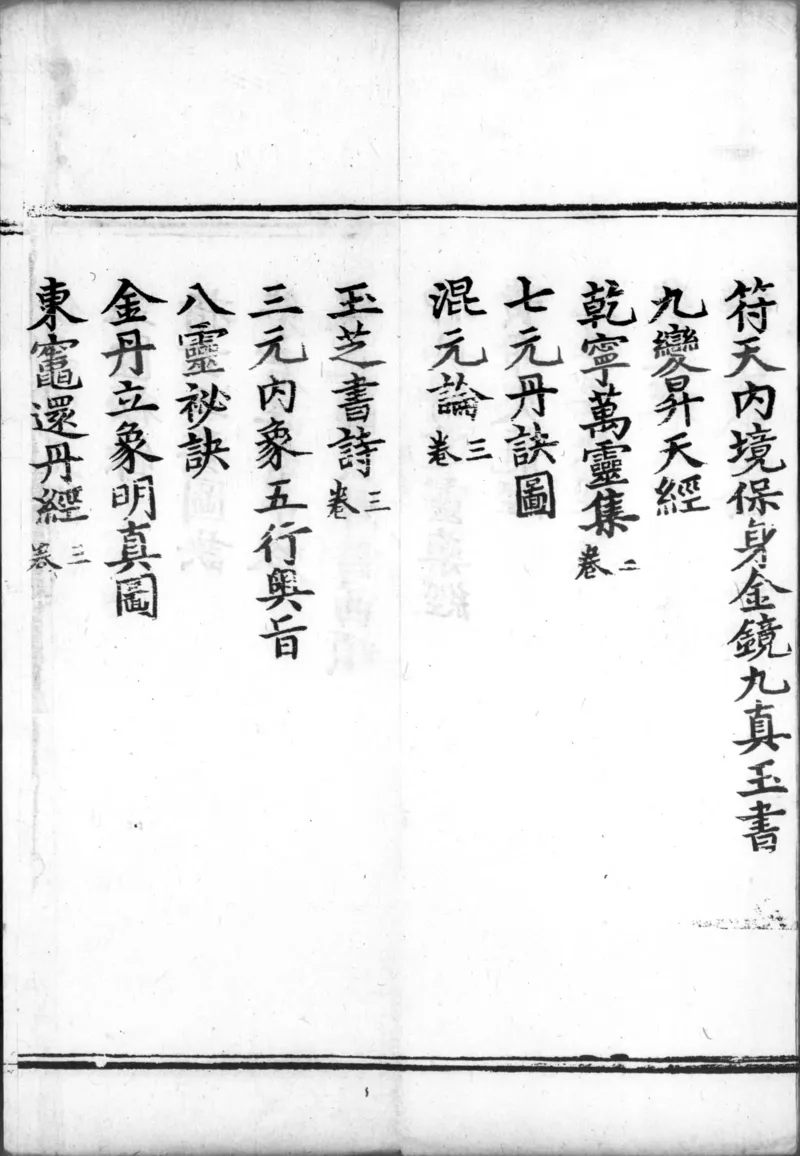 符天內境保身金鏡九真玉書
九變昇天經
乾寧萬靈集二卷
七元丹訣圖
混元論三卷
玉芝書詩三卷
三元內象五行奧旨
八靈祕訣
金丹立象明真圖
東竈還丹經三卷